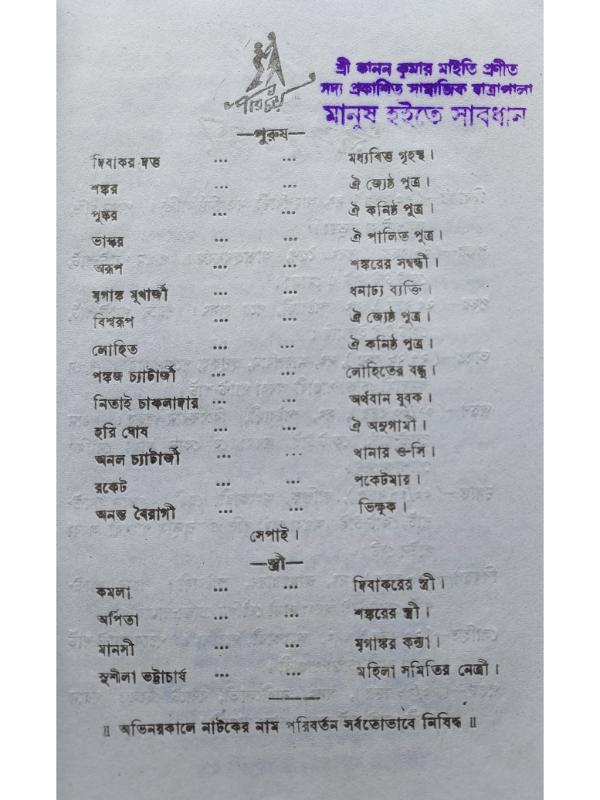 পরিচয়
শ্রী কানন কুমার মাইতি প্রণীত
সদ্য প্রকাশিত সামাজিক যাত্রাপালা
মানুষ হইতে সাবধান
—পুরুষ—
দিবাকর দত্ত ... ... মধ্যবিত্ত গৃহস্থ।
শঙ্কর ... ... ঐ জ্যেষ্ঠ পুত্র।
পুষ্কর ... ... ঐ কনিষ্ঠ পুত্র।
ভাস্কর ... ... ঐ পালিত পুত্র।
অরূপ ... ... শঙ্করের সম্বন্ধী।
মৃগাঙ্ক মুখার্জী ... ... ধনাঢ্য ব্যক্তি।
বিশ্বরূপ ... ... ঐ জ্যেষ্ঠ পুত্র।
লোহিত ... ... ঐ কনিষ্ঠ পুত্র।
পঙ্কজ চ্যাটার্জী ... ... লোহিতের বন্ধু।
নিতাই চাকলাদার ... ... অর্থবান যুবক।
হরি ঘোষ ... ... ঐ অনুগামী।
অনল চ্যাটার্জী ... ... থানার ও-সি।
রকেট ... ... পকেটমার।
অনন্ত বৈরাগী ... ... ভিক্ষুক।
সেপাই।
—স্ত্রী—
কমলা ... ... দিবাকরের স্ত্রী।
অর্পিতা ... ... শঙ্করের স্ত্রী।
মানসী ... ... মৃগাঙ্কর কন্যা।
সুশীলা ভট্টাচার্য ... ... মহিলা সমিতির নেত্রী।
॥ অভিনয়কালে নাটকের নাম পরিবর্তন সর্বতোভাবে নিষিদ্ধ ॥